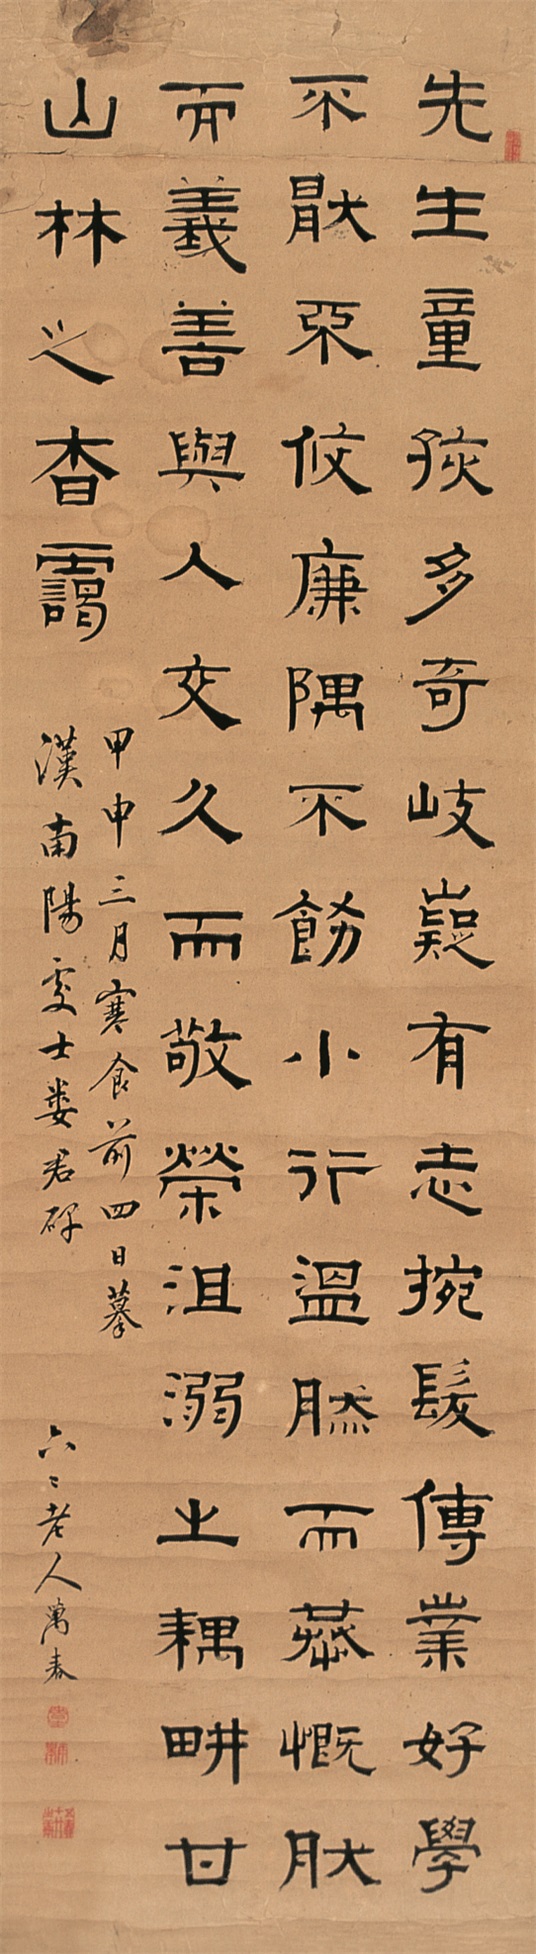 先生童孩多奇岐嶷有志捥髮傳業好學
不猒不攸廉隅不飭小行溫然而恭慨肰
而義善與人交久而敬榮沮溺之耦畊甘
山林之杳靄
甲申三月寒食前四日摹
漢南陽處士婁君碑
六二老人萬春